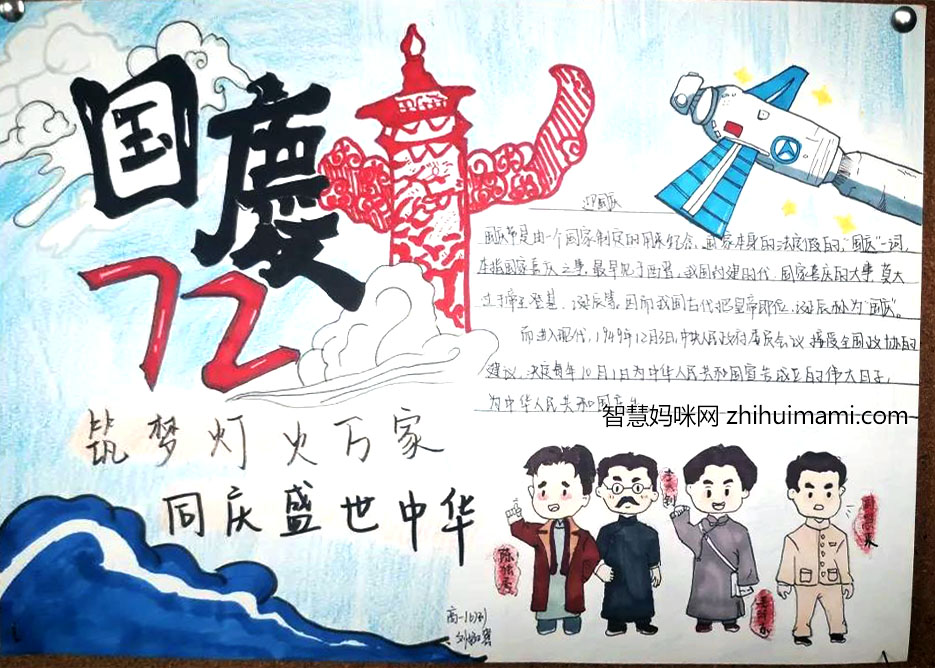 国慶
72
筑梦灯火万家
同庆盛世中华
迎国庆
国庆节是由一个国家制定的用来纪念国家本身的法定假日,"国庆"一词,
本指国家喜庆之事,最早见于西晋,我国封建时代,国家喜庆的大事,莫大
过于帝王登基、诞辰等,因而我国古代把皇帝即位、诞辰称为"国庆"。
而进入现代,1949年12月3日,中央人民政府委员会议接受全国政协的
建议,决定每年10月1日为中华人民共和国宣告成立的伟大日子,
为中华人民共和国国庆
智慧妈咪网 zhihuimami.com
李大钊
高一